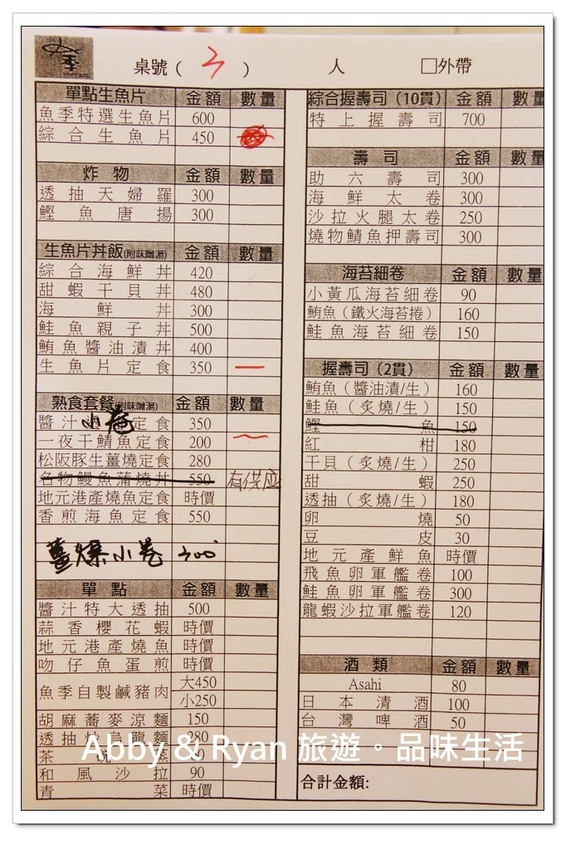 季
桌號( 3 ) 人 □外帶
單點生魚片 金額 數量
魚季特選生魚片 600
綜合生魚片 450
炸物 金額 數量
透抽天婦羅 300
鰹魚唐揚 300
生魚片丼飯(附味噌湯) 金額 數量
綜合海鮮丼 420
甜蝦干貝丼 480
海鮮丼 300
鮭魚親子丼 500
鮪魚醬油漬丼 400
生魚片定食 350 一
熟食套餐(附味噌湯) 金額 數量
醬汁小卷定食 350
一夜干鯖魚定食 200 一
松阪豚生薑燒定食 280
名物鰻魚蒲燒丼 550 有供应
地元港產燒魚定食 時價
香煎海魚定食 550
薑爆小卷 300
單點 金額 數量
醬汁特大透抽 500
蒜香櫻花蝦 時價
地元港產燒魚 時價
吻仔魚蛋煎 時價
魚季自製鹹豬肉 大450
小250
胡麻蕎麥涼麵 150
透抽炒烏龍麵 280
茶
和風沙拉 90
青菜 時價
綜合握壽司(10貫) 金額 數量
特上握壽司 700
壽司 金額 數量
助六壽司 300
海鮮太卷 300
沙拉火腿太卷 250
燒物鯖魚押壽司 300
海苔細卷 金額 數量
小黃瓜海苔細卷 90
鮪魚(鐵火海苔捲) 160
鮭魚海苔細卷 150
握壽司(2貫) 金額 數量
鮪魚(醬油漬/生) 160
鮭魚(炙燒/生) 150
鰹魚 150
紅魽 180
干貝(炙燒/生) 250
甜蝦 250
透抽(炙燒/生) 180
卵燒 50
豆皮 30
地元產鮮魚 時價
飛魚卵軍艦卷 100
鮭魚卵軍艦卷 300
龍蝦沙拉軍艦卷 120
酒類 金額 數量
Asahi 80
日本清酒 100
台灣啤酒 50
合計金額:
Abby & Ryan 旅遊。品味生活